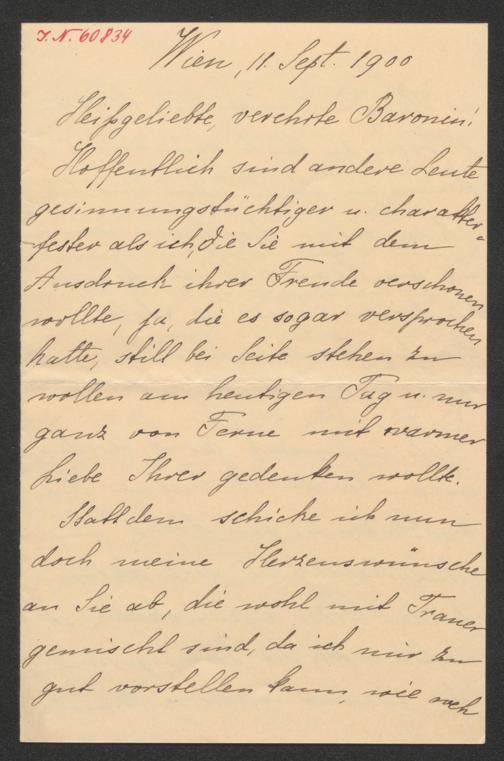 I.N. 60834
Wien, 11. Sept. 1900
Heißgeliebte, verehrte Baronin!
Hoffentlich sind andere Leute
gesinnungstüchtiger u. charakter-
fester als ich, die Sie mit dem
Ausdruck ihrer Freude verschonen
wollte, ja, die es sogar versprochen
hatte, still bei Seite stehen zu
wollen am heutigen Tag u. nur
ganz von Ferne mit warmer
Liebe Ihrer gedenken wollte.
Stattdem schicke ich nun
doch meine Herzenswünsche
an Sie ab, die wohl mit Trauer
gemischt sind, da ich mir zu
gut vorstellen kann, wie roch